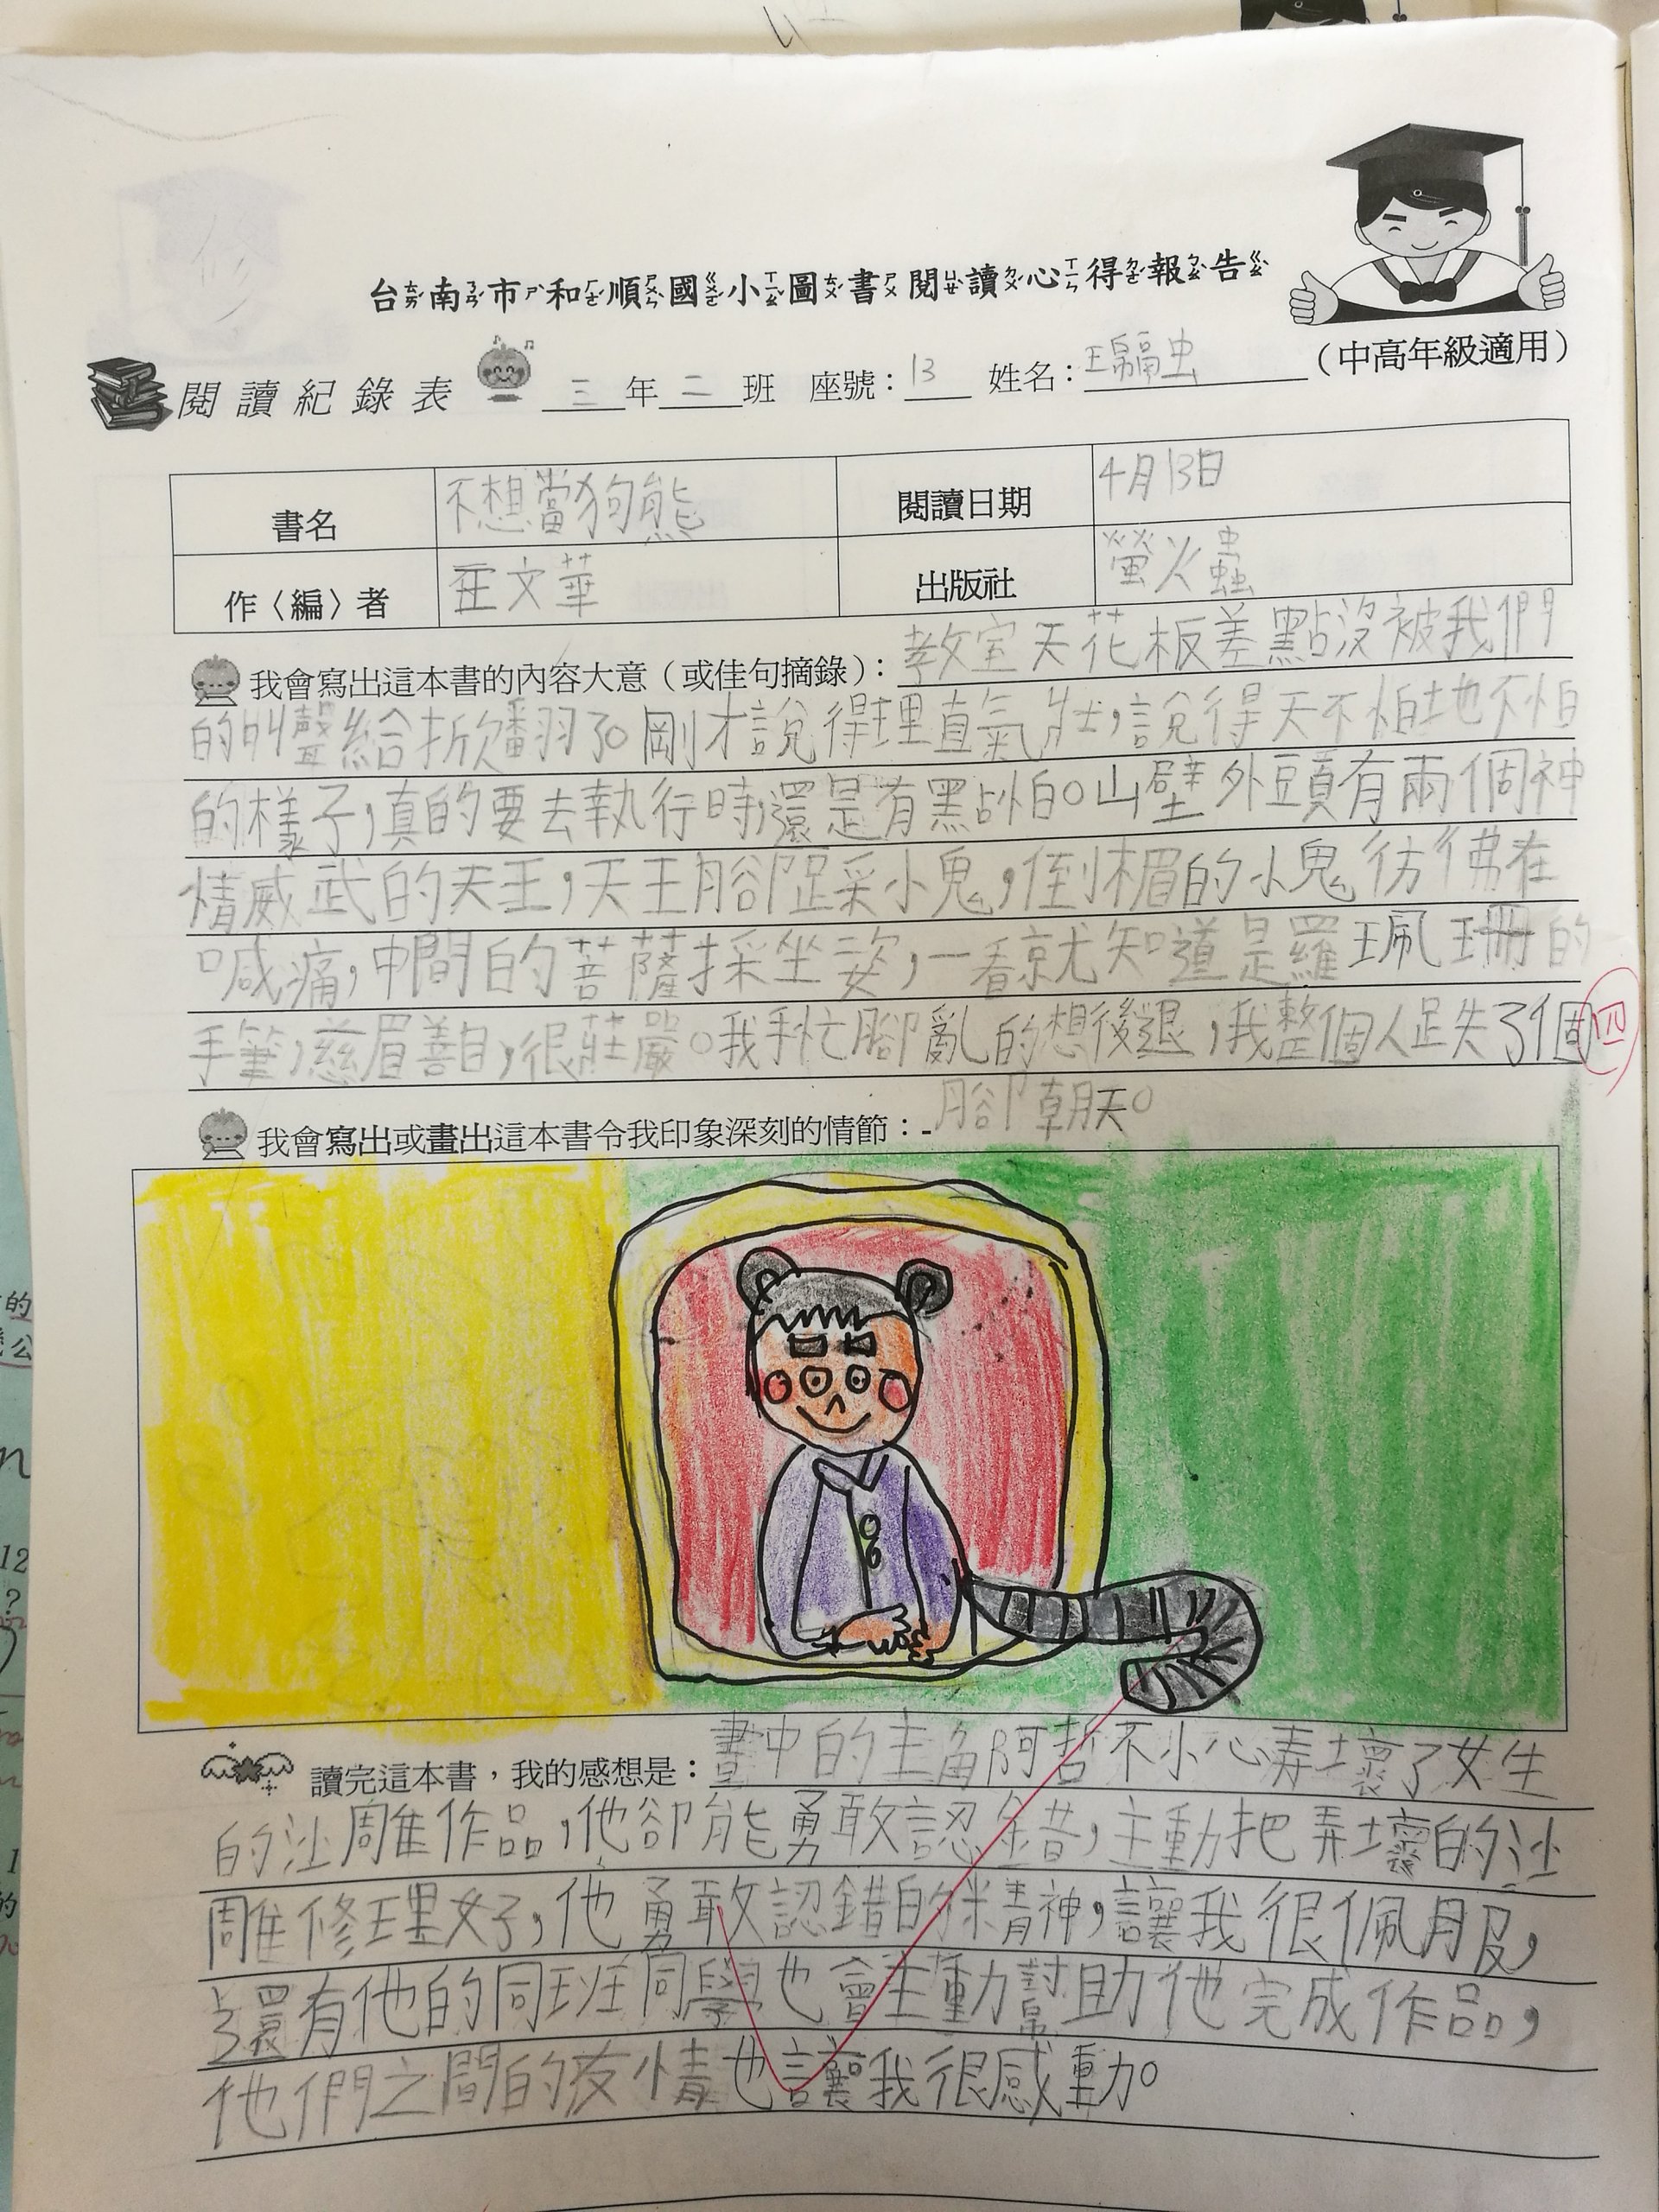 台南市和順國小圖書閱讀心得報告
(中高年級適用)
閱讀紀錄表 三年二班 座號:13 姓名:
書名 不想當狗熊 閱讀日期 4月13日
作〈編〉者 王文華 出版社 螢火蟲
我會寫出這本書的內容大意(或佳句摘錄): 教室天花板差點沒被我們
的叫聲給掀翻了。剛才說得理直氣壯,說得天不怕地不怕
的樣子,真的要去執行時,還是有點怕。山壁外頭有兩個神
情威武的天王,天王腳踩小鬼,倒楣的小鬼彷彿在
喊痛,中間的菩薩採坐姿,一看就知道是羅珮珊的
手筆,慈眉善目,很莊嚴。我手忙腳亂的想後退,我整個人跌了個四
腳朝天。
我會寫出或畫出這本書令我印象深刻的情節:
讀完這本書,我的感想是: 書中的主角阿哲不小心弄壞了女生
的沙雕作品,他卻能勇敢認錯,主動把弄壞的沙
雕修理好,他勇敢認錯的精神,讓我很佩服,
還有他的同班同學也會主動幫助他完成作品,
他們之間的友情也讓我很感動。